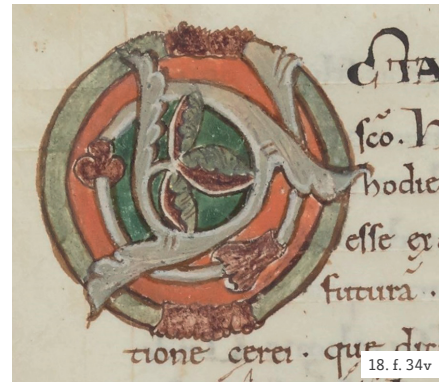 O ETA
sc̄o. H
hodie
esse ex
futurā.
tione cerei. que dic
18. f. 34v